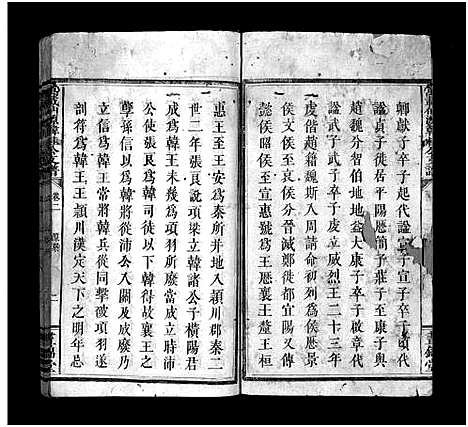 卿獻子卒子起代謚宣子宣子卒子須代
謚貞子徙居平陽歷簡子莊子至康子與
趙魏分智伯地地益大康子卒子啟章代
謚武子武子卒子虔立威烈王二十三年
虔偕趙籍魏斯入周請命初列為侯歷景
侯文侯哀侯分晉滅鄭徙都宜陽又傳
懿侯昭侯至宣惠始號為王歷襄王釐王桓
惠王至王安為秦所并地入潁川郡秦二
世二年張良說項梁立韓諸公子橫陽君
成為韓王未幾為項羽所廢當成立時沛
公使張良為韓將徒以下韓得故襄王之
孽孫信以為韓將從沛公入關及成廢乃
立信為韓王常將韓兵從同擊破項羽遂
剖符為韓王王潁川漢定天下之明年忌
卷二